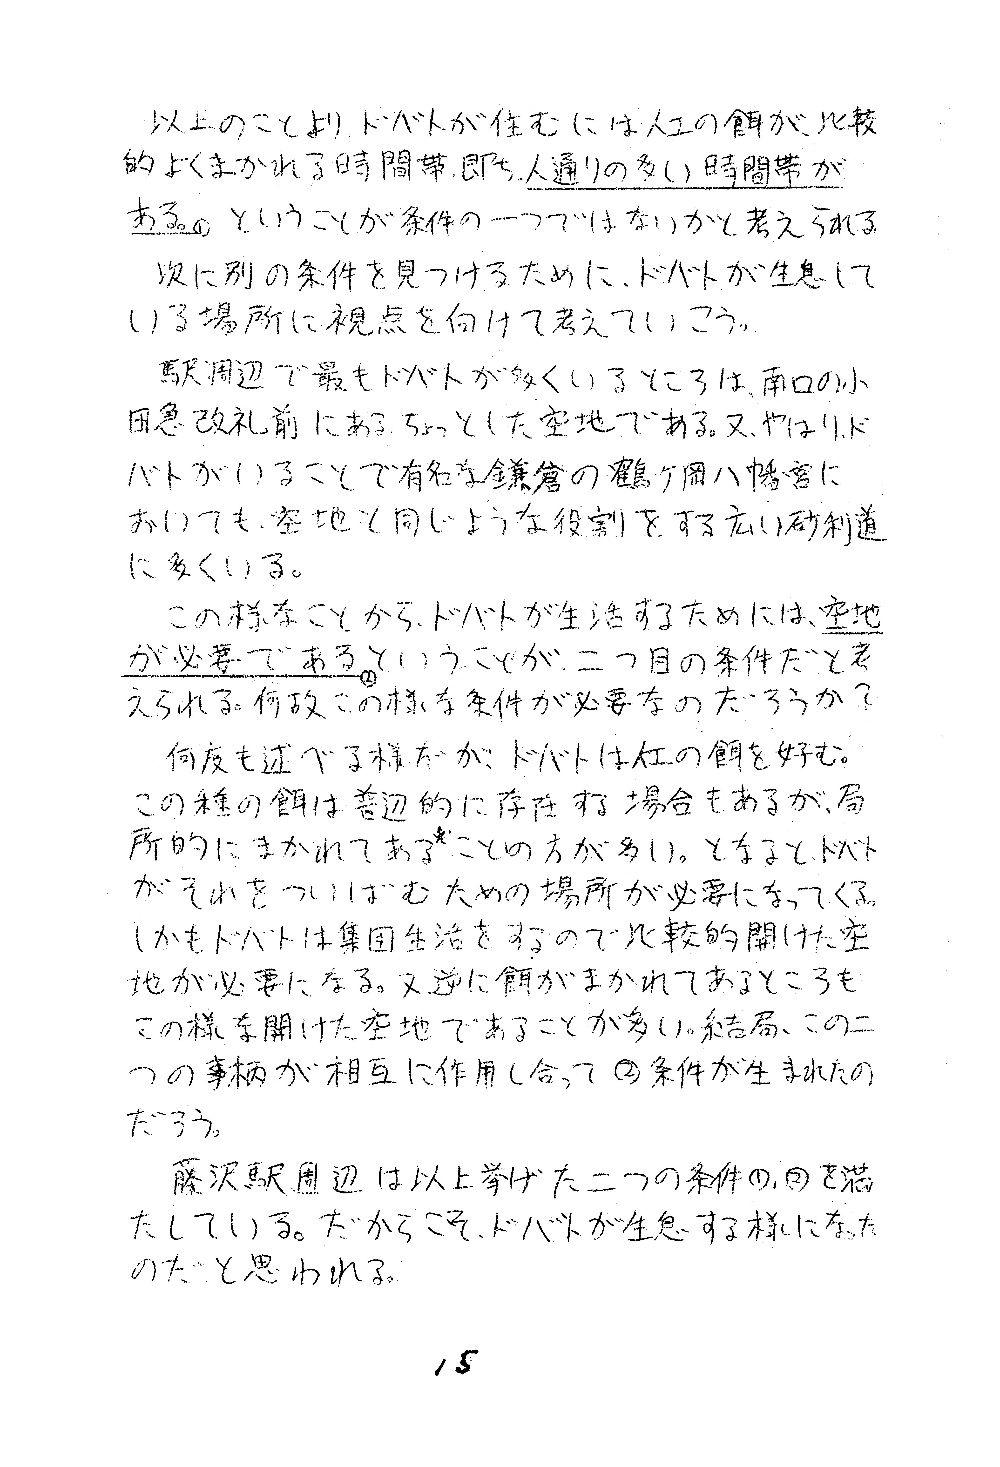 以上のことより、ドバトが住むには人工の餌が、比較
的よくまかれる時間帯、即ち、人通りの多い時間帯が
ある。① ということが条件の一つではないかと考えられる
次に別の条件を見つけるために、ドバトが生息して
いる場所に視点を向けて考えていこう。
駅周辺で最もドバトが多くいるところは、南口の小
田急改札前にあるちょっとした空地である。又、やはり、ド
バトがいることで有名な鎌倉の鶴ケ岡八幡宮に
おいても、空地と同じような役割をする広い砂利道
に多くいる。
この様なことから、ドバトが生活するためには、空地
が必要である②ということが、二つ目の条件だと考
えられる。何故この様な条件が必要なのだろうか?
何度も述べる様だが、ドバトは人工の餌を好む。
この種の餌は普辺的に存在する場合もあるが、局
所的にまかれてある*ことの方が多い。となると、ドバト
がそれをついばむための場所が必要になってくる。
しかもドバトは集団生活をするので比較的開けた空
地が必要になる。又逆に餌がまかれてあるところも
この様な開けた空地であることが多い。結局、この二
つの事柄が相互に作用し合って②条件が生まれたの
だろう。
藤沢駅周辺は以上挙げた二つの条件①,②を満
たしている。だからこそ、ドバトが生息する様になった
のだと思われる。
15